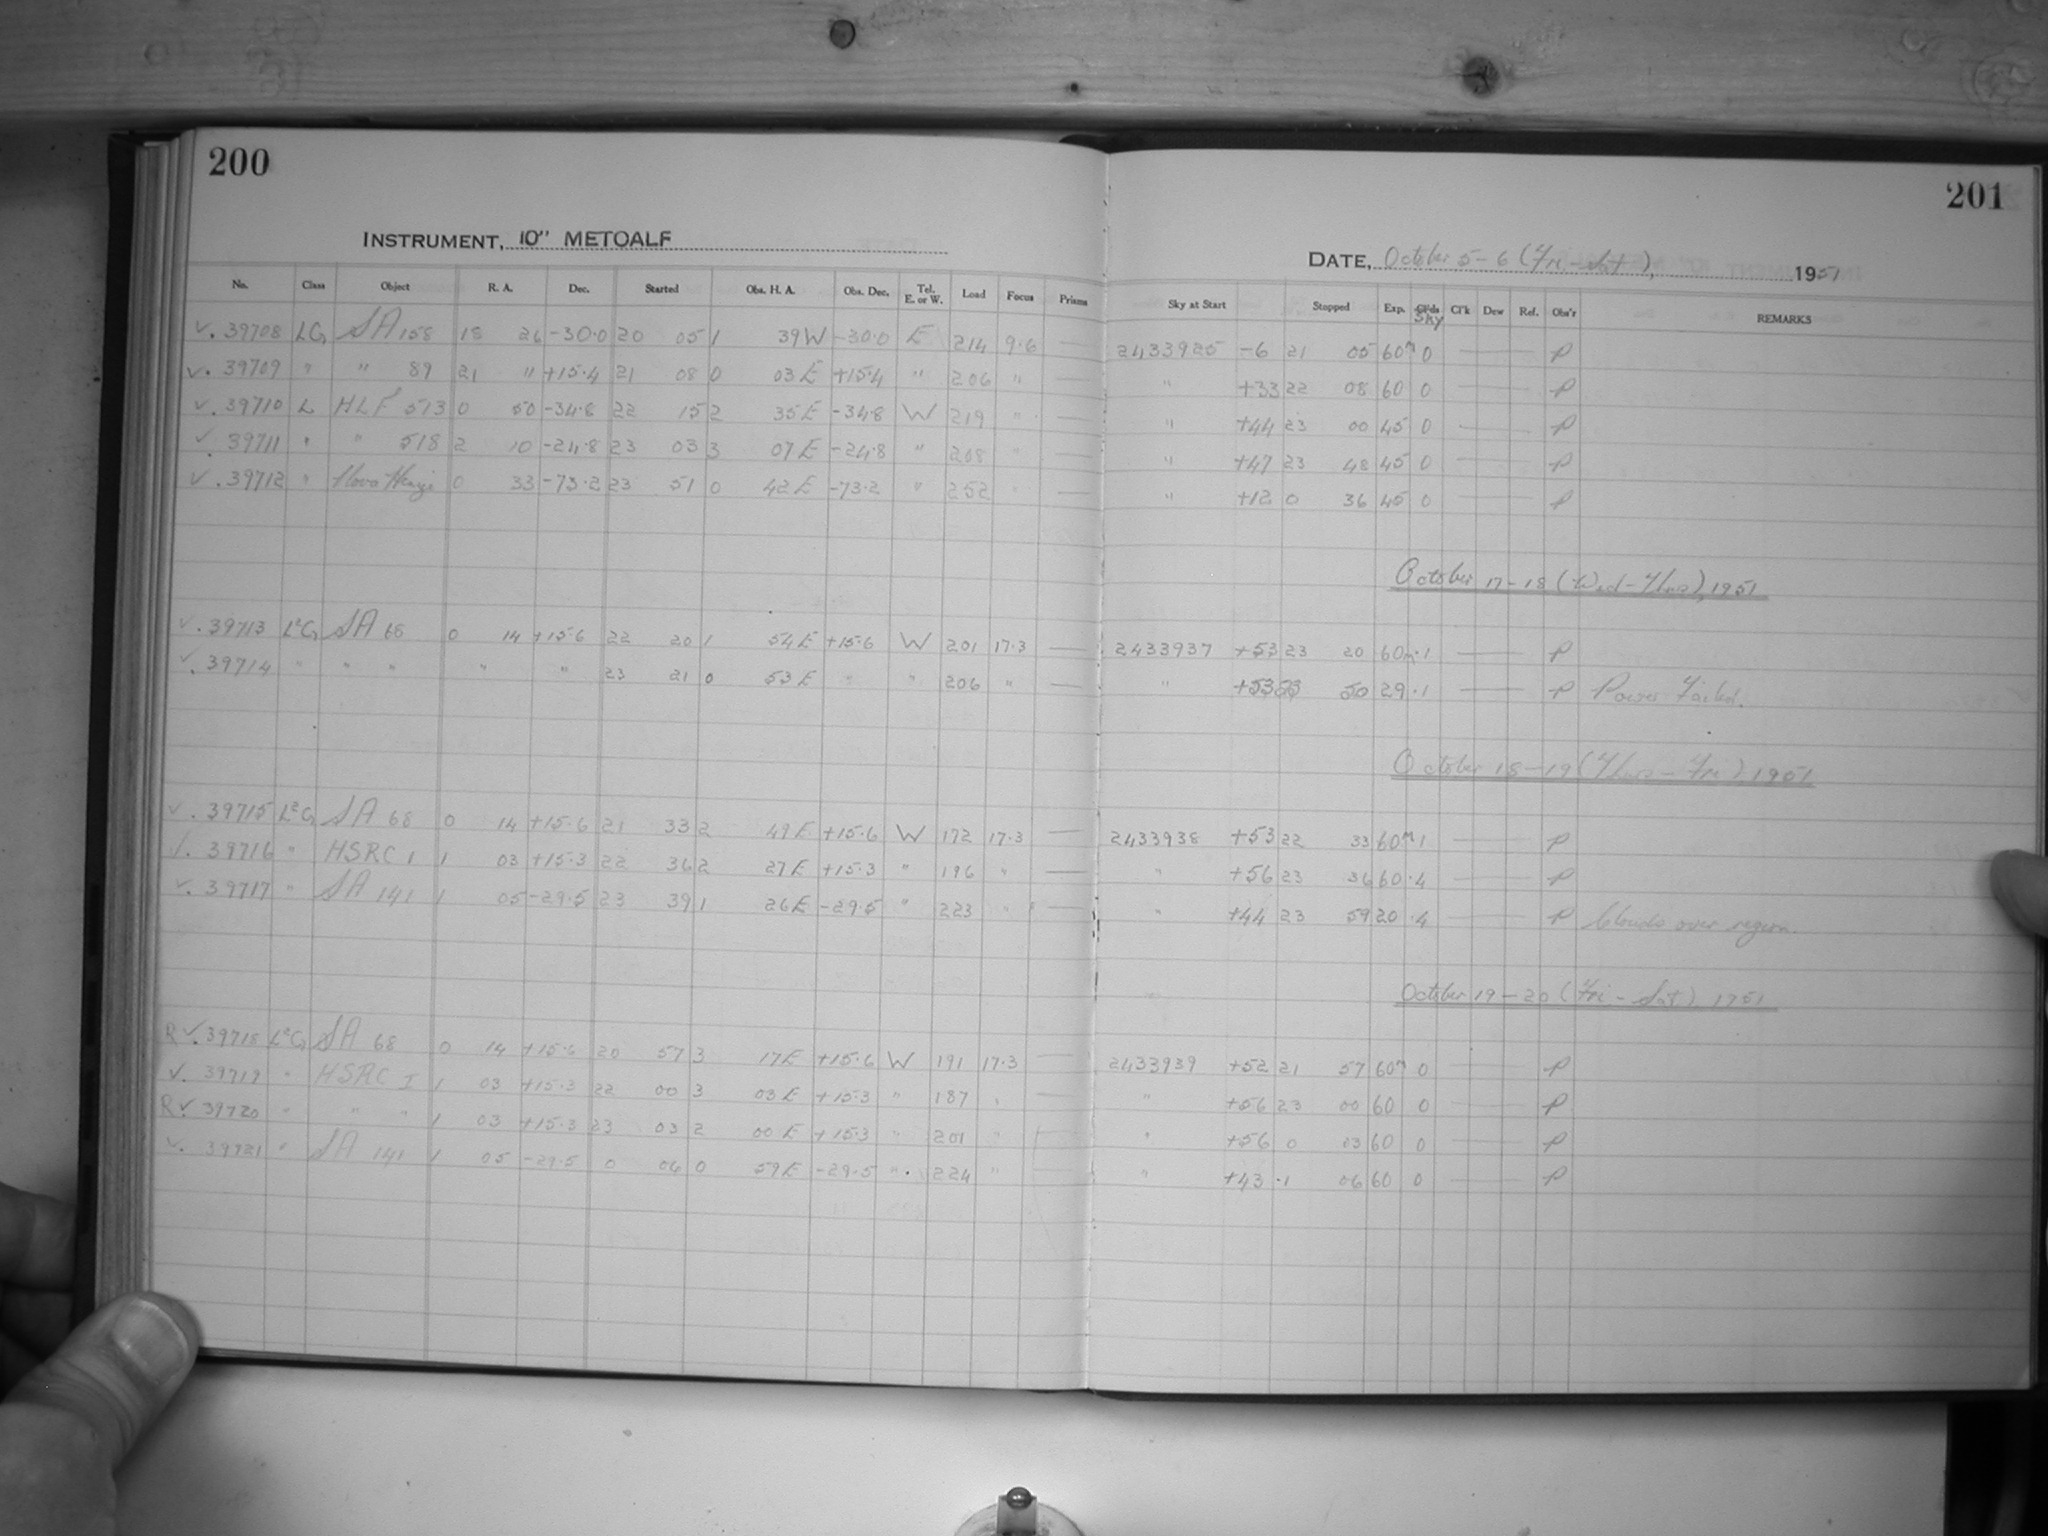 200
201
INSTRUMENT, 10" METCALF
DATE, October 5-6 (Fri-Sat), 1951
No. Class Object R. A. Dec. Started Obs. H. A. Obs. Dec. Tel. E. or W. Load Focus Prisms Sky at Start Stopped Exp. Cl'ds Sky Cl'k Dew Ref. Obs'r REMARKS
✓. 39708 LG SA 158 18 26 -30.0 20 05 1 39 W -30.0 E 214 9.6 — 2433925 -6 21 05 60m 0 — P
✓. 39709 " " 89 21 " +15.4 21 08 0 03 E +15.4 " 206 " — " +33 22 08 60 0 — P
✓. 39710 L HLF 513 0 50 -34.8 22 15 2 35 E -34.8 W 219 " — " +44 23 00 45 0 — P
✓. 39711 " " 518 2 10 -24.8 23 03 3 07 E -24.8 " 208 " — " +47 23 48 45 0 — P
✓. 39712 " 0 33 -73.2 23 51 0 42 E -73.2 " 252 " — " +12 0 36 45 0 — P
October 17-18 (Wed-Thurs), 1951
✓. 39713 L²G SA 68 0 14 +15.6 22 20 1 54 E +15.6 W 201 17.3 — 2433937 +53 23 20 60m .1 — P
✓. 39714 " " " " " 23 21 0 53 E " " 206 " — " +53 23 50 29 .1 — P Power Failed.
October 18-19 (Thurs-Fri), 1951
✓. 39715 L²G SA 68 0 14 +15.6 21 33 2 49 E +15.6 W 172 17.3 — 2433938 +53 22 33 60m .1 — P
✓. 39716 " HSRC 1 1 03 +15.3 22 36 2 27 E +15.3 " 196 " — " +56 23 36 60 .4 — P
✓. 39717 " SA 141 1 05 -29.5 23 39 1 26 E -29.5 " 223 " — " +44 23 59 20 .4 — P Clouds over region.
October 19-20 (Fri-Sat), 1951
R ✓. 39718 L²G SA 68 0 14 +15.6 20 57 3 17 E +15.6 W 191 17.3 — 2433939 +52 21 57 60m 0 — P
✓. 39719 " HSRC I 1 03 +15.3 22 00 3 03 E +15.3 " 187 " " +56 23 00 60 0 — P
R ✓. 39720 " " " 1 03 +15.3 23 03 2 00 E +15.3 " 201 " " +56 0 03 60 0 — P
✓. 39721 " SA 141 1 05 -29.5 0 06 0 59 E -29.5 " 224 " " +43 .1 06 60 0 — P